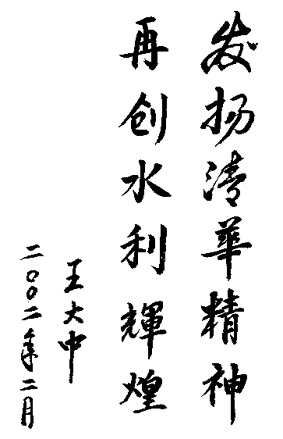 发扬清華精神
再创水利輝煌
王大中
二〇〇二年二月